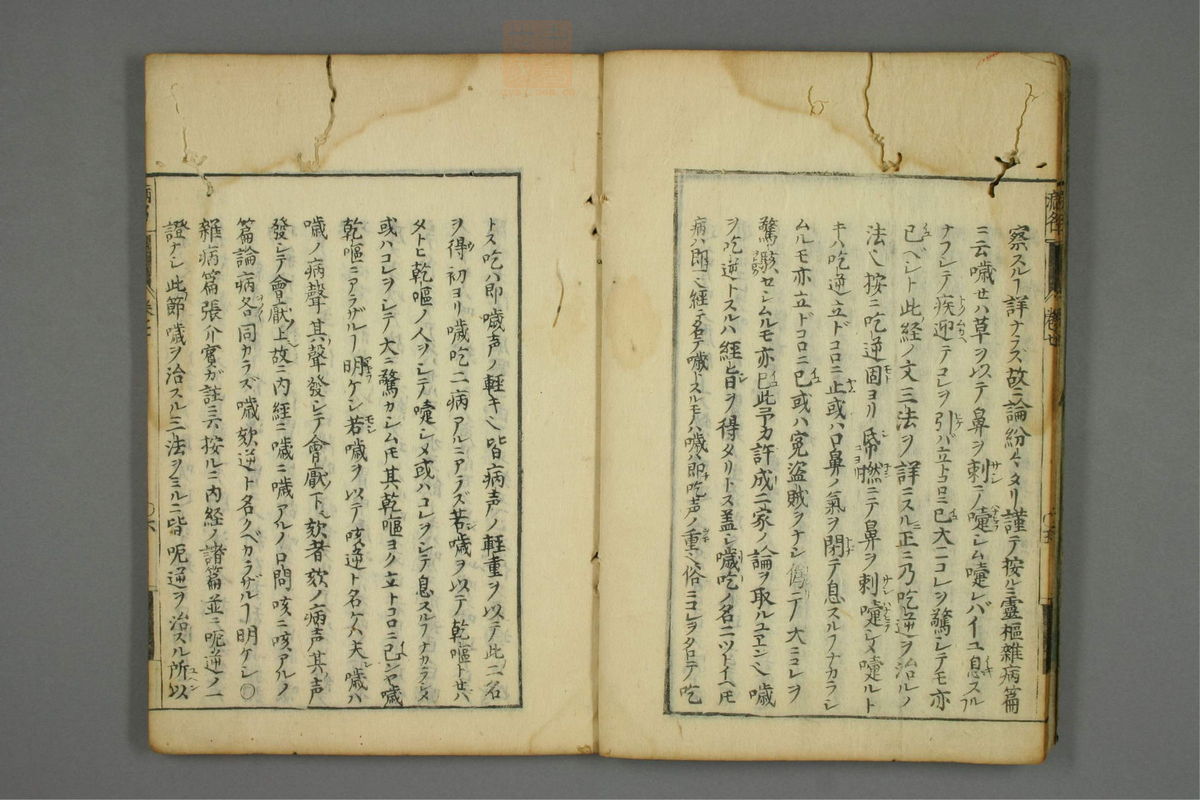 察スルヿ詳ナラズ故ニ論紛々タリ謹テ按ルニ霊樞雜病篇
ニ云噦セハ草ヲ以テ鼻ヲ刺テ嚏シム嚏レバイユ息スルヿ
ナフシテ疾迎テコレヲ引バ立トコロニ已大ニコレヲ驚シテモ亦
已ベシト此経ノ文三法ヲ詳ニスル正ニ乃吃逆ヲ治ルノ
法也按ニ吃逆固ヨリ帋撚ニテ鼻ヲ刺嚏シメ嚏ルト
キハ吃逆立ドコロニ止或ハ口鼻ノ氣ヲ閉テ息スルヿナカラシ
ムルモ亦立ドコロニ已或ハ寃盗賊ヲナシ偽テ大ニコレヲ
驚駭セシムルモ亦已此予カ許成二家ノ論ヲ取ルユヱン也噦
ヲ吃逆トスルハ経旨ヲ得タリトス盖シ噦吃ノ名二ツトイヘモ
病ハ即一也経ニ名テ噦トスルモノハ噦ハ即吃声ノ重キ也俗ニコレヲ名ロテ吃
トス吃ハ即噦声ノ軽キ也皆病声ノ軽重ヲ以テ此二名
ヲ得初ヨリ噦吃二病アルニアラズ若噦ヲ以テ乾嘔トセハ
タトヒ乾嘔ノ人ヲシテ嚏シメ或ハコレヲシテ息スルヿナカラシメ
或ハコレヲシテ大ニ驚カシムモ其乾嘔ヨク立トコロニ已ンヤ噦
乾嘔ニアラザルヿ明ケシ若噦ヲ以テ咳逆ト名ケハ夫噦ハ
噦ノ病聲其聲發シテ會厭下也欬者欬ノ病声其声
發シテ會厭上故ニ内經ニ噦ニ噦アルノ口問咳ニ咳アルノ
篇論病各同カラズ噦欬逆ト名クベカラザルヿ明ケシ○
雜病篇張介賓ガ註ニ云按ルニ内経ノ諸篇並ニ呃逆ノ一
證ナシ此節噦ヲ治スル三法ヲミルニ皆呃逆ヲ治スル所以